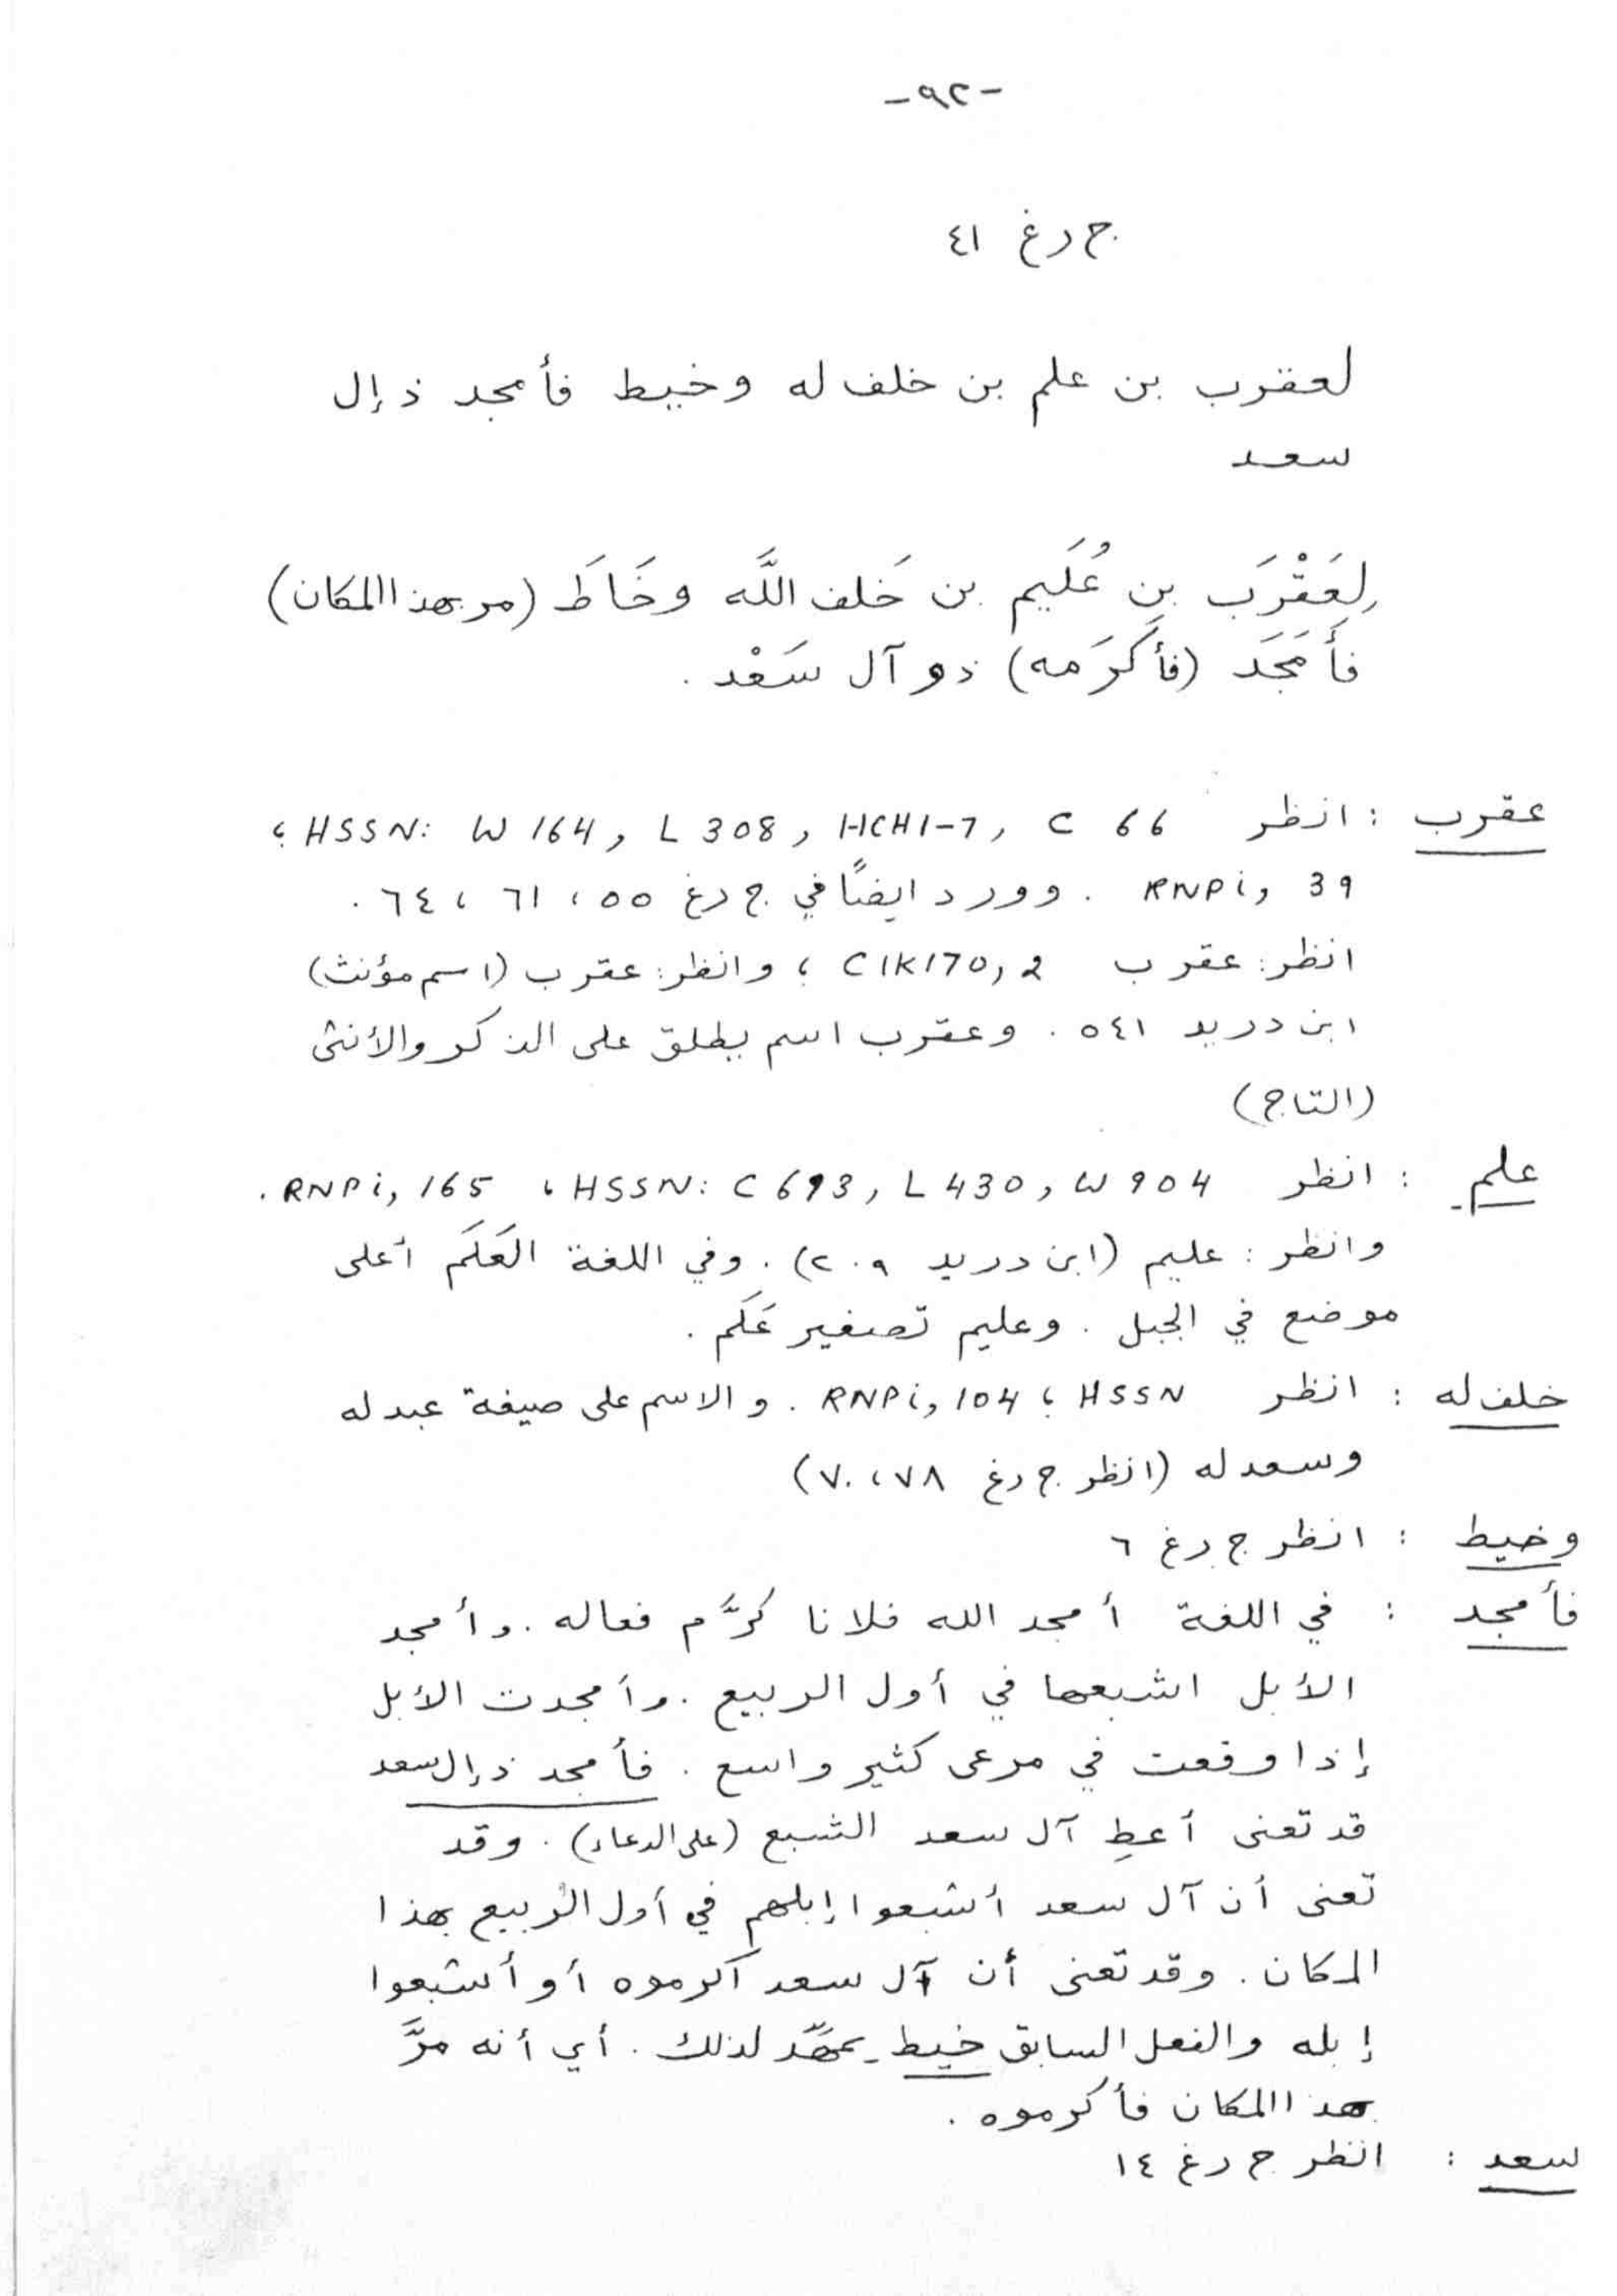 -٩٢-
ج رغ ٤١
لعقرب بن علم بن خلف له وخيط فأمجد ذ إل
سعد
لِعَقْرَب بن عُلَيم بن خَلف اللَّه وخَاطَ (مر بهذا المكان)
فأَمَجَد (فأكرَمه) ذو آل سَعْد .
عقرب : انظر HSSN: W 164, L 308, HCH1-7, C 66 ؛
RNPi, 39 . وورد ايضًا في ج رغ ٥٥ ، ٦١ ، ٦٤ .
انظر: عقرب CIK170,2 ؛ وانظر: عقرب (اسم مؤنث)
ابن دريد ٥٤١ . وعقرب اسم يطلق على الذكر والأنثى
(التاج)
علم : انظر HSSN: C 693, L 430, W 904 ، RNPi, 165 .
وانظر : عليم (ابن دريد ٢٠٩) . وفي اللغة العَلَم أعلى
موضع في الجبل . وعليم تصغير عَلَم .
خلف له : انظر HSSN ؛ RNPi, 104 . والاسم على صيغة عبد له
وسعد له (انظر ج رغ ٧٨ ، ٧٠)
وخيط : انظر ج رغ ٦
فأمجد : في اللغة أمجد الله فلانا كرَّم فعاله . وأمجد
الأبل اشبعها في أول الربيع . وأمجدت الأبل
إذا وقعت في مرعى كثير واسع . فأمجد ذ إل سعد
قد تعنى أعطِ آل سعد الشبع (على الدعاء) . وقد
تعنى أن آل سعد أشبعوا إبلهم في أول الربيع بهذا
المكان . وقد تعنى أن آل سعد أكرموه أو أشبعوا
إبله والفعل السابق خيط يمهّد لذلك . أي أنه مرَّ
بهذا المكان فأكرموه .
سعد : انظر ج رغ ١٤